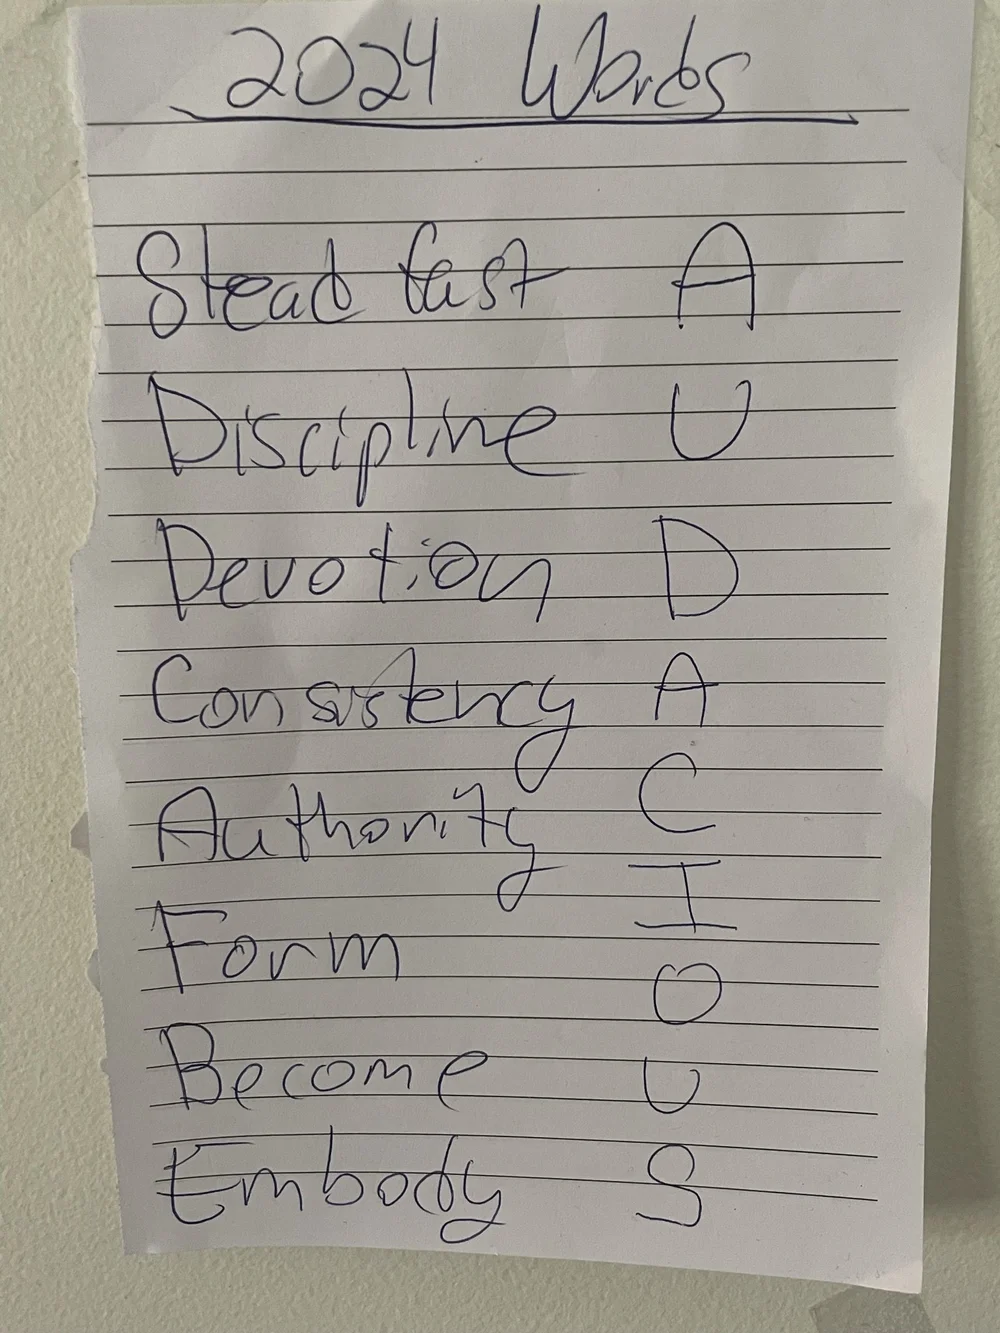 2024 Words
Stead fast A
Discipline U
Devotion D
Consistency A
Authority C
Form I
O
Become U
Embody S